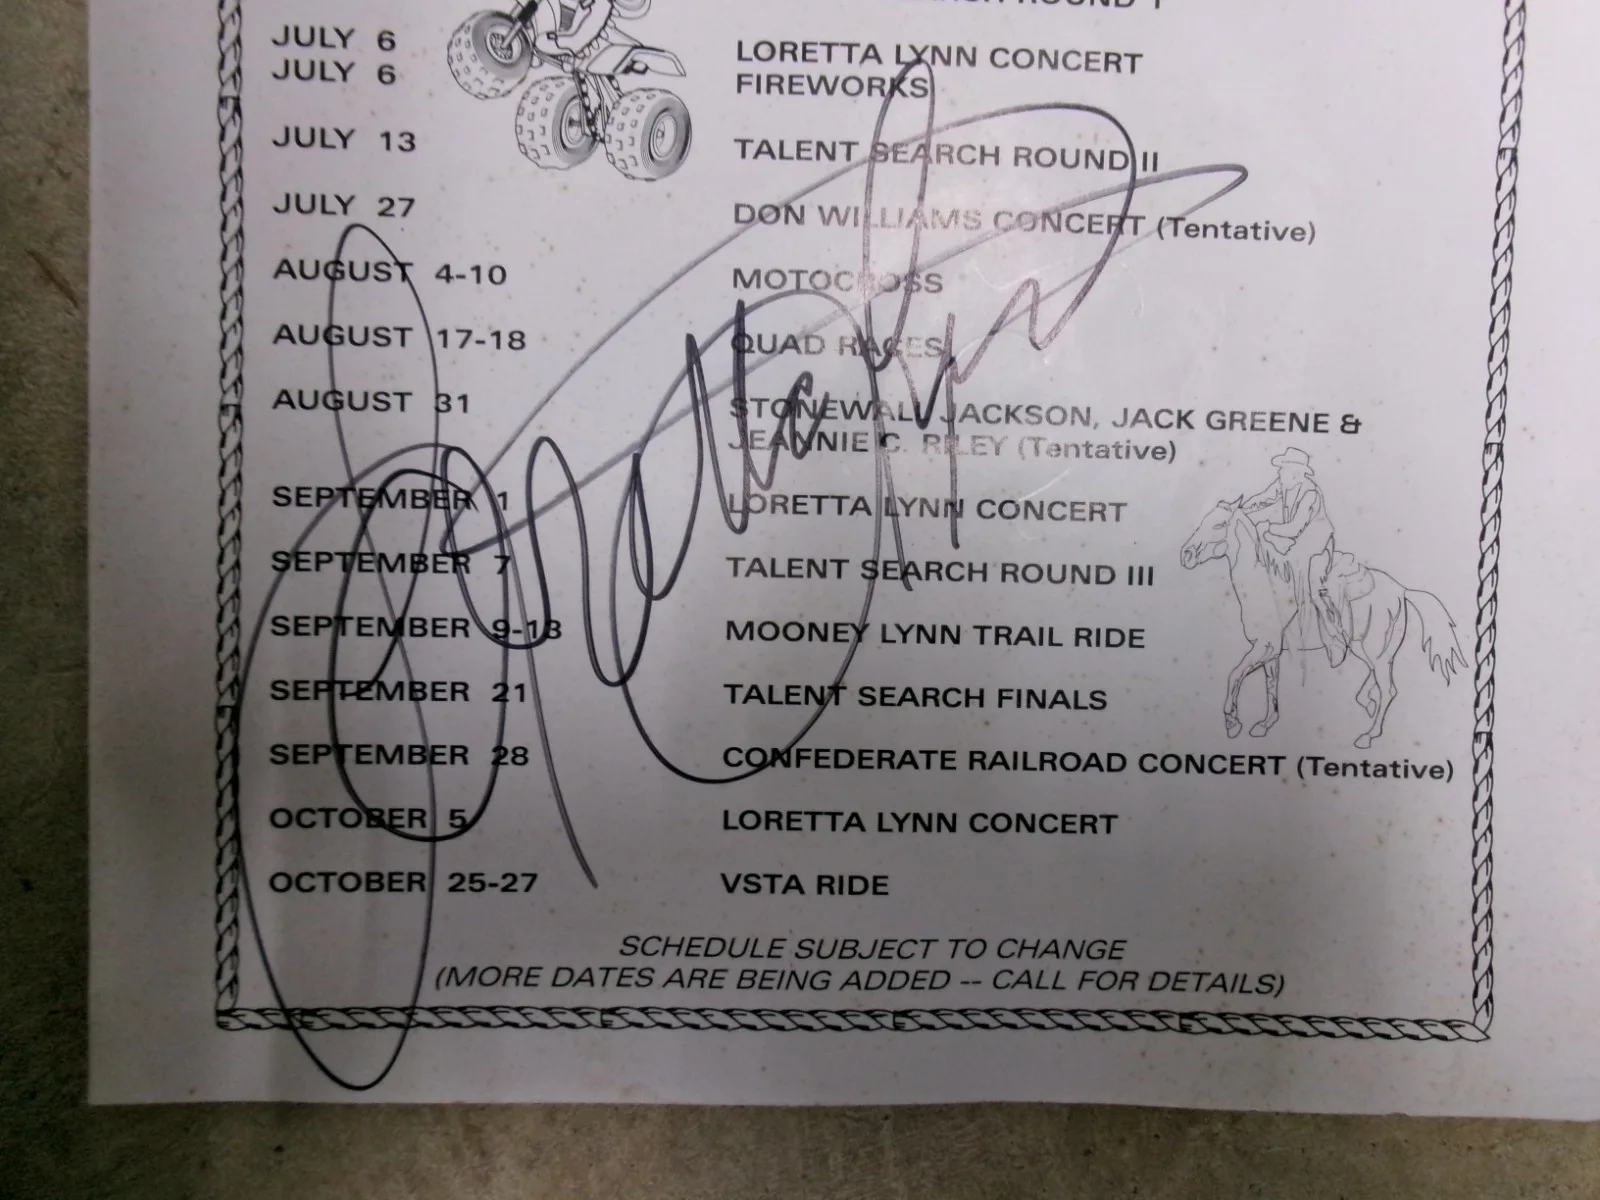 JULY 6 LORETTA LYNN CONCERT
JULY 6 FIREWORKS
JULY 13 TALENT SEARCH ROUND II
JULY 27 DON WILLIAMS CONCERT (Tentative)
AUGUST 4-10 MOTOCROSS
AUGUST 17-18 QUAD RACES
AUGUST 31 STONEWALL JACKSON, JACK GREENE &
JEANNIE C. RILEY (Tentative)
SEPTEMBER 1 LORETTA LYNN CONCERT
SEPTEMBER 7 TALENT SEARCH ROUND III
SEPTEMBER 9-13 MOONEY LYNN TRAIL RIDE
SEPTEMBER 21 TALENT SEARCH FINALS
SEPTEMBER 28 CONFEDERATE RAILROAD CONCERT (Tentative)
OCTOBER 5 LORETTA LYNN CONCERT
OCTOBER 25-27 VSTA RIDE
SCHEDULE SUBJECT TO CHANGE
(MORE DATES ARE BEING ADDED -- CALL FOR DETAILS)